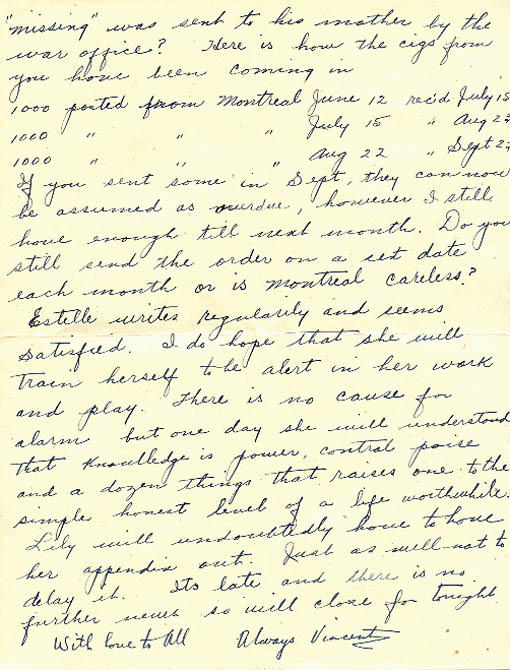 "missing" was sent to his mother by the
war office? Here is how the cigs from
you have been coming in
1000 posted from Montreal June 12 rec'd July 15
1000 " " " July 15 " Aug 23
1000 " " " Aug 22 " Sept 23
If you sent some in Sept, they can now
be assumed as overdue, however I still
have enough till next month. Do you
still send the order on a set date
each month or is Montreal careless?
Estelle writes regularily and seems
satisfied. I do hope that she will
train herself to be alert in her work
and play. There is no cause for
alarm but one day she will understand
that knowledge is power, control poise
and a dozen things that raises one to the
simple honest level of a life worthwhile.
Lily will undoubtedly have to have
her appendix out. Just as well not to
delay it. Its late and there is no
further news so will close for tonight
With love to All Always Vincent